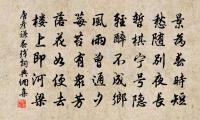 景為春時短
愁隨別夜長
暫棋寧號隱
輕醉不成鄉
風雨曾通夕
莓苔有眾芳
落花如便去
樓上即河梁
唐彥謙春殘詩詞典